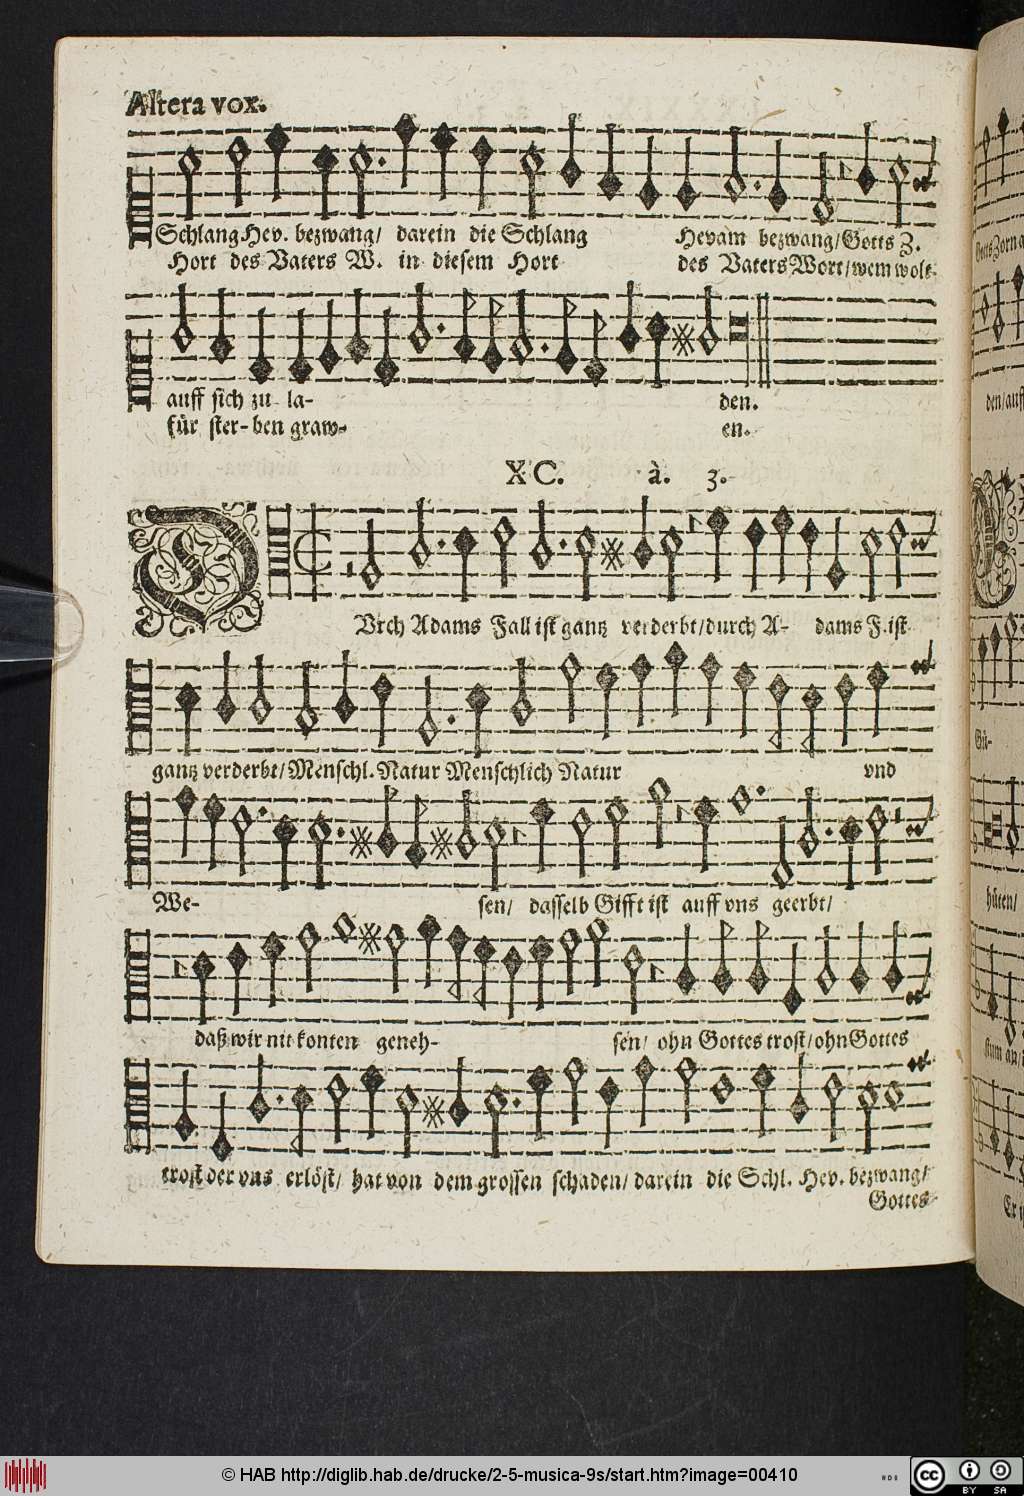 Altera vox.
Schlang Hev. bezwang/ darein die Schlang Hevam bezwang/Gotts Z.
Hort des Vaters W. in diesem Hort des Vaters Wort/wem wolt
auff sich zu la- den.
für ster-ben graw- en.
XC. à. 3.
DUrch Adams Fall ist gantz verderbt/durch A- dams F.ist
gantz verderbt/Menschl.Natur Menschlich Natur vnd
We- sen/ dasselb Gifft ist auff vns geerbt/
daß wir nit konten geneh- sen/ ohn Gottes trost/ohn Gottes
trost der vns erlöst/ hat von dem grossen schaden/darein die Schl. Hev. bezwang/
Gottes
Gotts Zorn a
den/auff
Gü-
hüten/
Er i
© HAB http://diglib.hab.de/drucke/2-5-musica-9s/start.htm?image=00410
cc BY SA